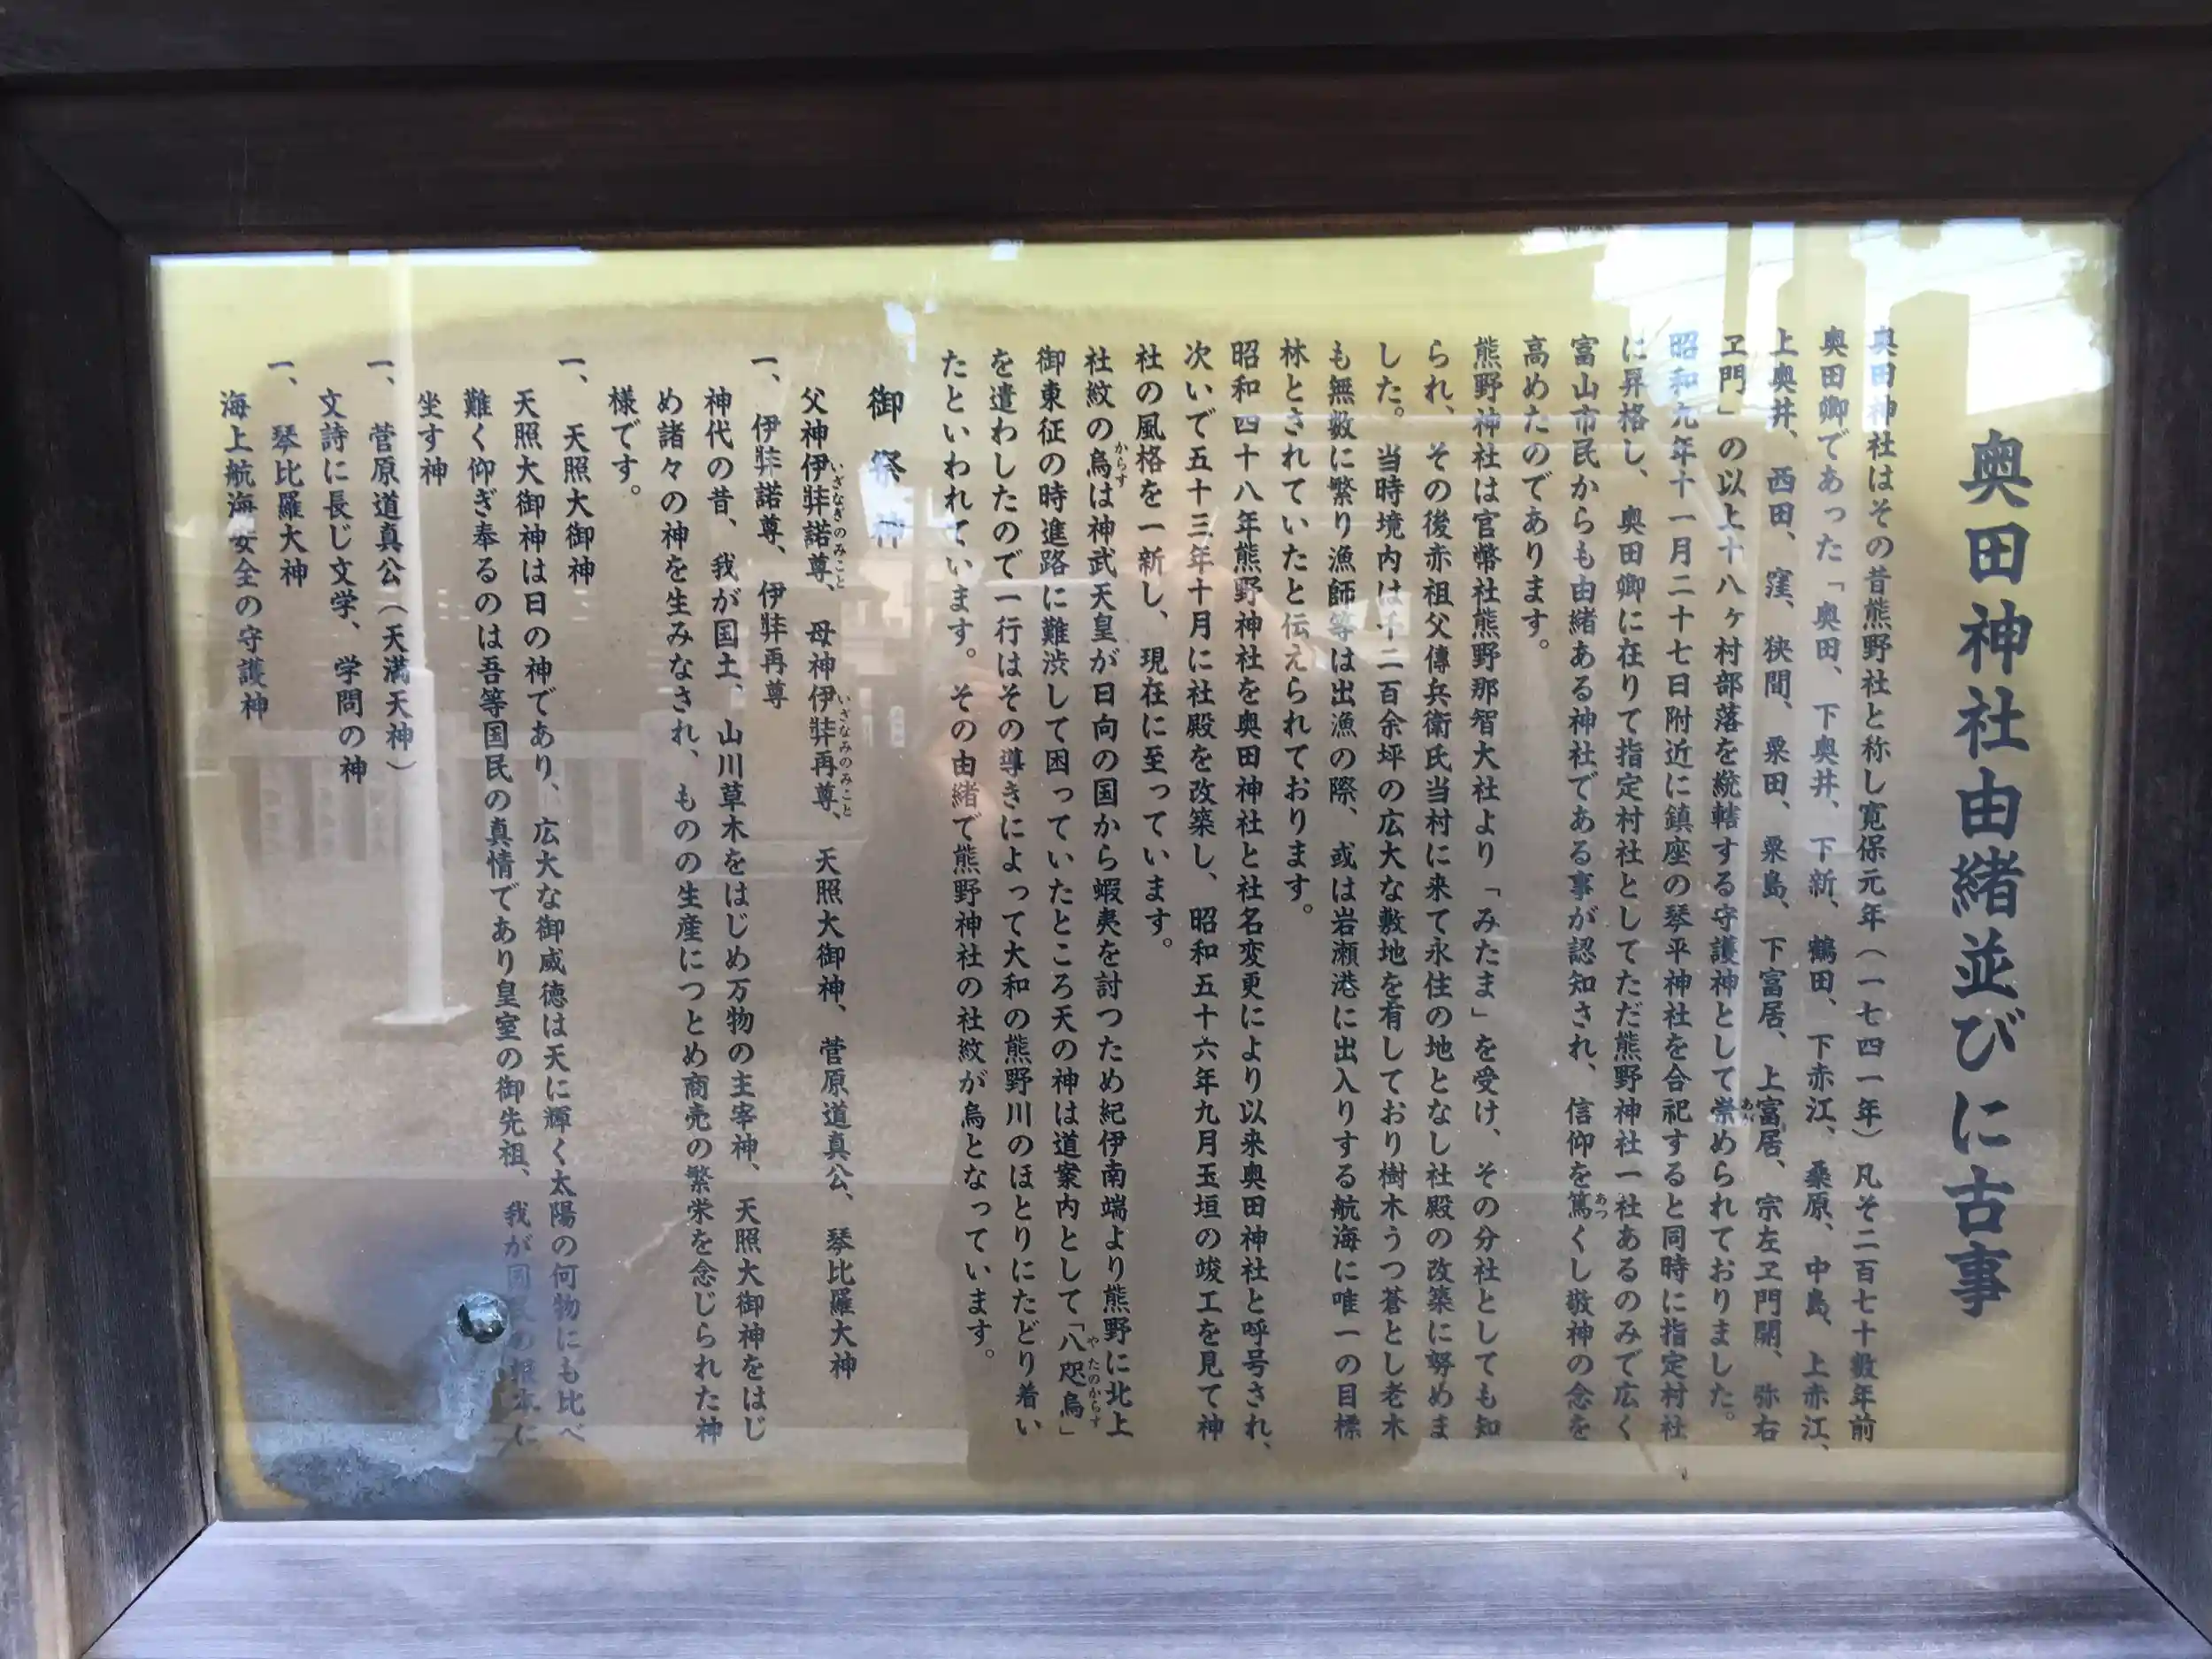 奥田神社由緒並びに古事
奥田神社はその昔熊野社と称し寛保元年（一七四一年）凡そ二百七十数年前
奥田卿であった「奥田、下奥井、下新、鶴田、下赤江、桑原、中島、上赤江、
上奥井、西田、窪、狭間、粟田、粟島、下富居、上富居、宗左ヱ門開、弥右
ヱ門」の以上十八ヶ村部落を統轄する守護神として崇められておりました。
昭和九年十一月二十七日附近に鎮座の琴平神社を合祀すると同時に指定村社
に昇格し、奥田卿に在りて指定村社としてただ熊野神社一社あるのみで広く
富山市民からも由緒ある神社である事が認知され、信仰を篤くし敬神の念を
高めたのであります。
熊野神社は官幣社熊野那智大社より「みたま」を受け、その分社としても知
られ、その後赤祖父傳兵衛氏当村に来て永住の地となし社殿の改築に努めま
した。当時境内は千二百余坪の広大な敷地を有しており樹木うつ蒼とし老木
も無数に繁り漁師等は出漁の際、或は岩瀬港に出入りする航海に唯一の目標
林とされていたと伝えられております。
昭和四十八年熊野神社を奥田神社と社名変更により以来奥田神社と呼号され、
次いで五十三年十月に社殿を改築し、昭和五十六年九月玉垣の竣工を見て神
社の風格を一新し、現在に至っています。
社紋の烏は神武天皇が日向の国から蝦夷を討つため紀伊南端より熊野に北上
御東征の時進路に難渋して困っていたところ天の神は道案内として「八咫烏」
を遣わしたので一行はその導きによって大和の熊野川のほとりにたどり着い
たといわれています。その由緒で熊野神社の社紋が烏となっています。
御祭神
父神伊弉諾尊、母神伊弉再尊、天照大御神、菅原道真公、琴比羅大神
一、伊弉諾尊、伊弉再尊
神代の昔、我が国土、山川草木をはじめ万物の主宰神、天照大御神をはじ
め諸々の神を生みなされ、ものの生産につとめ商売の繁栄を念じられた神
様です。
一、天照大御神
天照大御神は日の神であり、広大な御威徳は天に輝く太陽の何物にも比べ
難く仰ぎ奉るのは吾等国民の真情であり皇室の御先祖、我が国家の根本に
坐す神
一、菅原道真公（天満天神）
文詩に長じ文学、学問の神
一、琴比羅大神
海上航海安全の守護神